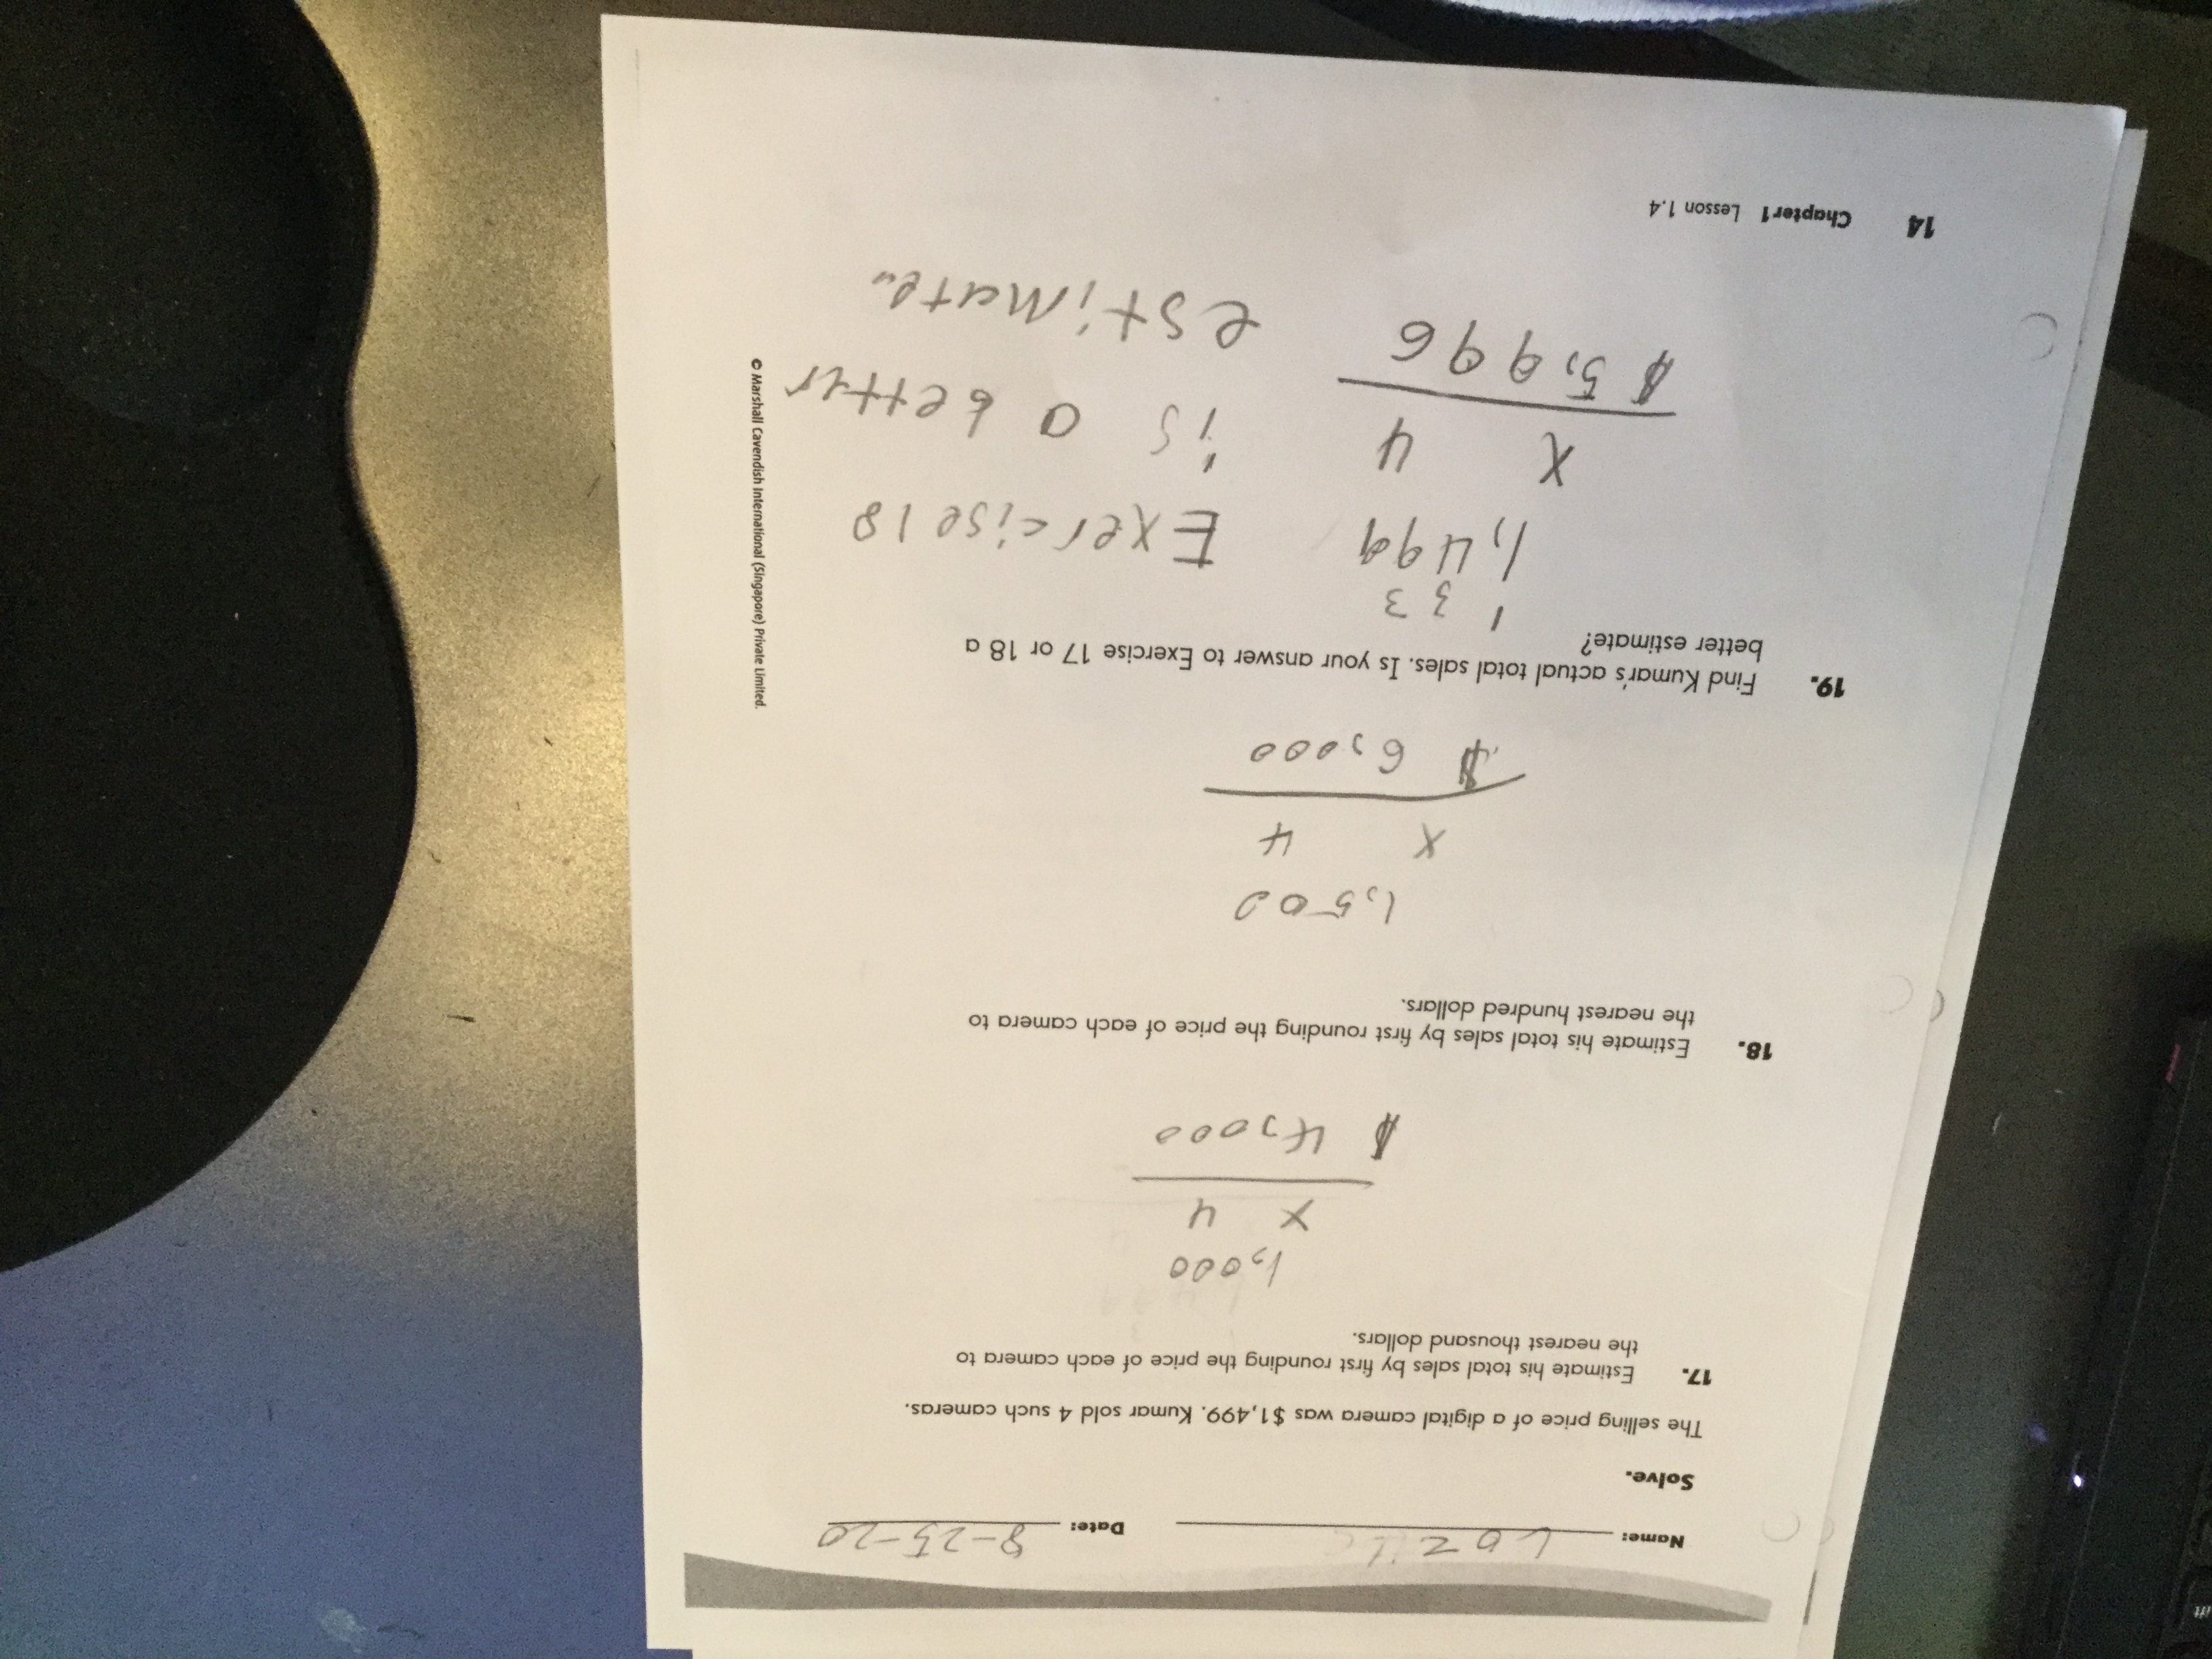 ift
Name: Date: 8-25-20
Solve.
The selling price of a digital camera was $1,499. Kumar sold 4 such cameras.
17. Estimate his total sales by first rounding the price of each camera to
the nearest thousand dollars.
1,000
x 4
$ 4,000
18. Estimate his total sales by first rounding the price of each camera to
the nearest hundred dollars.
1,500
x 4
$ 6,000
19. Find Kumar's actual total sales. Is your answer to Exercise 17 or 18 a
better estimate?
1 3 3
1,499
x 4
$ 5,996
Exercise 18
is a better
estimate.
© Marshall Cavendish International (Singapore) Private Limited.
14 Chapter 1 Lesson 1.4